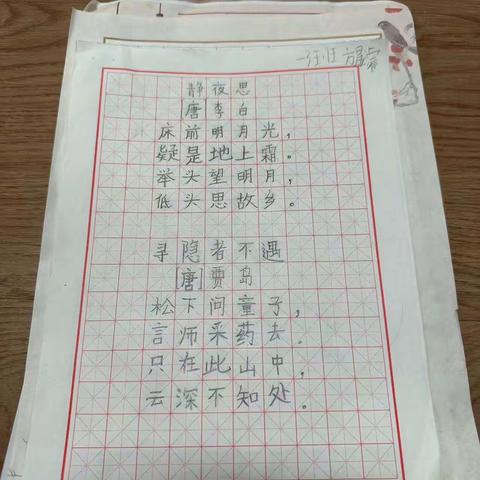 静夜思
[唐]李白
床前明月光，
疑是地上霜。
举头望明月，
低头思故乡。
寻隐者不遇
[唐]贾岛
松下问童子，
言师采药去.
只在此山中，
云深不知处。